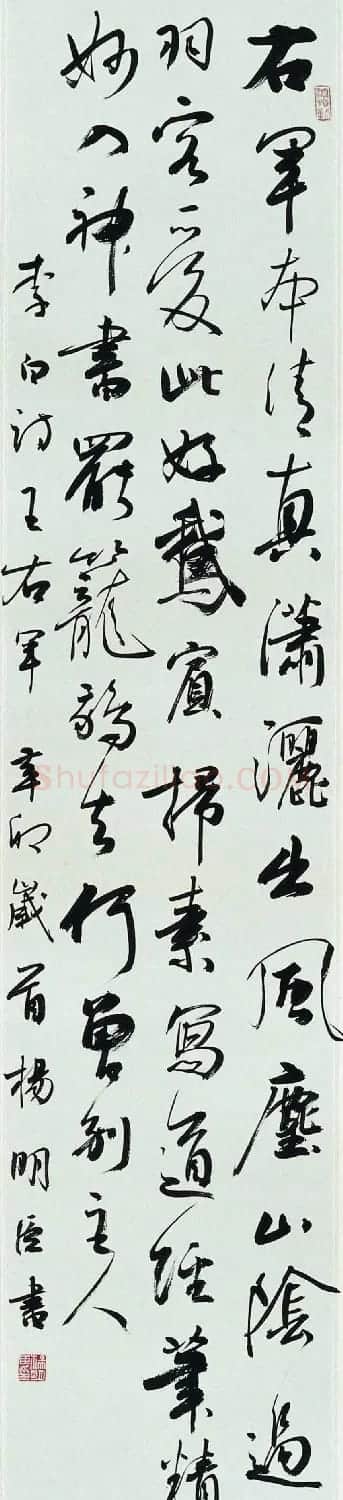 右軍本清真瀟灑出風塵山陰過
羽客愛此好鵝賓掃素寫道經筆精
妙入神書罷籠鵝去何曾別主人
李白詩王右軍辛卯歲首楊明臣書
Shufaziliao.com